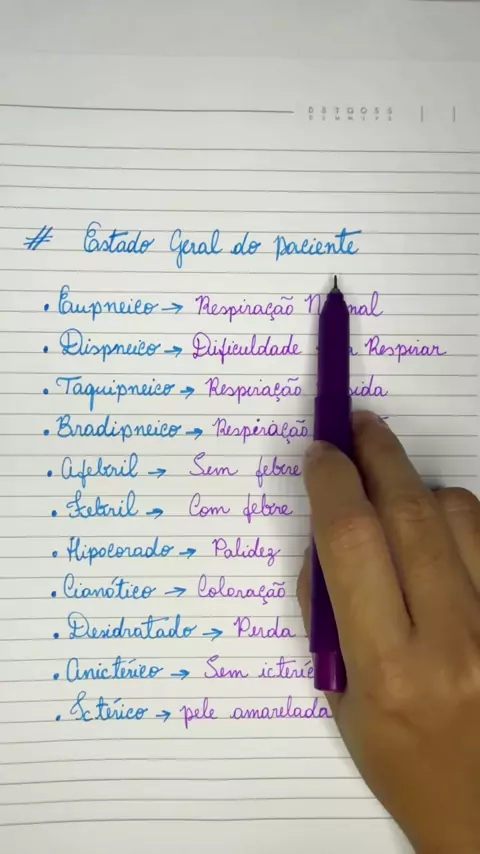 D S T Q Q S S
# Estado Geral do paciente
• Eupneico → Respiração Normal
• Dispneico → Dificuldade Respirar
• Taquipneico → Respiração
• Bradipneico → Respiração
• Afebril → Sem febre
• Febril → Com febre
• Hipocorado → Palidez
• Cianótico → Coloração
• Desidratado → Perda
• Anictérico → Sem
• Ictérico → pele amarelada